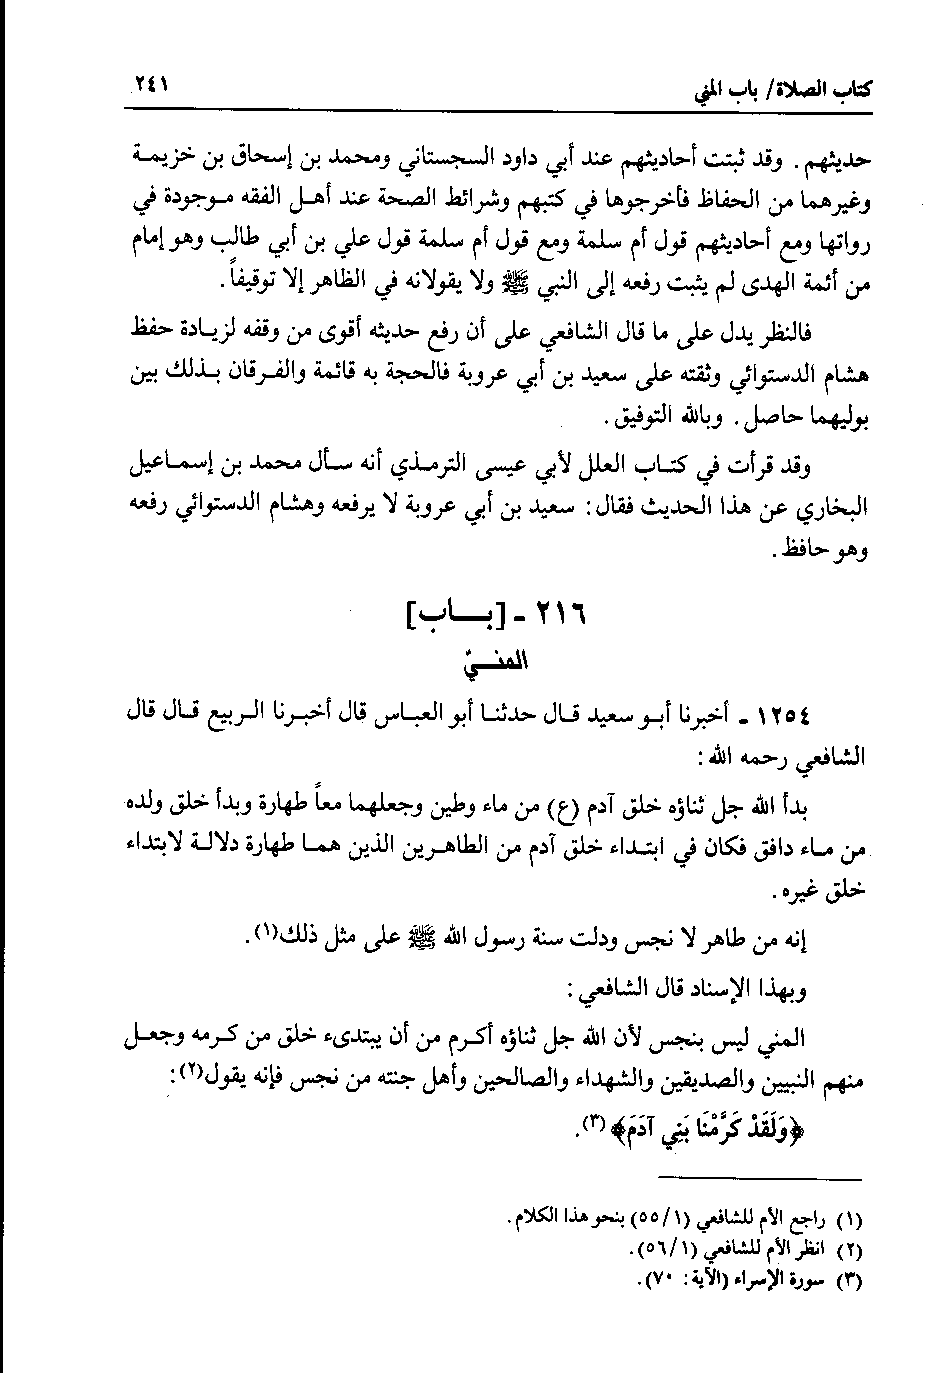 كتاب الصلاة/ باب المني ٢٤١
حديثهم. وقد ثبتت أحاديثهم عند أبي داود السجستاني ومحمد بن إسحاق بن خزيمة
وغيرهما من الحفاظ فأخرجوها في كتبهم وشرائط الصحة عند أهل الفقه موجودة في
رواتها ومع أحاديثهم قول أم سلمة ومع قول أم سلمة قول علي بن أبي طالب وهو إمام
من أئمة الهدى لم يثبت رفعه إلى النبي ﷺ ولا يقولانه في الظاهر إلا توقيفاً.
فالنظر يدل على ما قال الشافعي على أن رفع حديثه أقوى من وقفه لزيادة حفظ
هشام الدستوائي وثقته على سعيد بن أبي عروبة فالحجة به قائمة والفرقان بذلك بين
بوليهما حاصل. وبالله التوفيق.
وقد قرأت في كتاب العلل لأبي عيسى الترمذي أنه سأل محمد بن إسماعيل
البخاري عن هذا الحديث فقال: سعيد بن أبي عروبة لا يرفعه وهشام الدستوائي رفعه
وهو حافظ.
٢١٦ - [باب]
المنيّ
١٢٥٤ - أخبرنا أبو سعيد قال حدثنا أبو العباس قال أخبرنا الربيع قال قال
الشافعي رحمه الله:
بدأ الله جل ثناؤه خلق آدم (ع) من ماء وطين وجعلهما معاً طهارة وبدأ خلق ولده
من ماء دافق فكان في ابتداء خلق آدم من الطاهرين الذين هما طهارة دلالة لابتداء
خلق غيره.
إنه من طاهر لا نجس ودلت سنة رسول الله ﷺ على مثل ذلك(١).
وبهذا الإسناد قال الشافعي:
المني ليس بنجس لأن الله جل ثناؤه أكرم من أن يبتدىء خلق من كرمه وجعل
منهم النبيين والصديقين والشهداء والصالحين وأهل جنته من نجس فإنه يقول(٢):
﴿وَلَقَدْ كَرَّمْنَا بَنِي آدَمَ﴾(٣).
(١) راجع الأم للشافعي (٥٥/١) بنحو هذا الكلام.
(٢) انظر الأم للشافعي (٥٦/١).
(٣) سورة الإسراء (الآية: ٧٠).